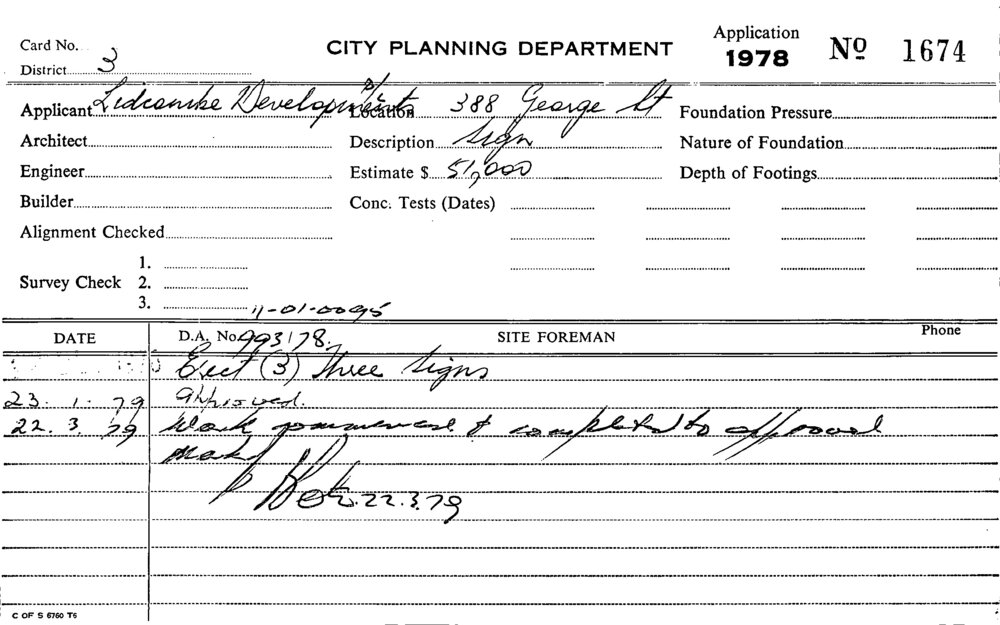 Card No. CITY PLANNING DEPARTMENT Application 1978 Nº 1674
District 3
Applicant Lidcombe Developments P/L Location 388 George St Foundation Pressure
Architect Description Sign Nature of Foundation
Engineer Estimate $ 51,000 Depth of Footings
Builder Conc. Tests (Dates)
Alignment Checked
Survey Check 1.
2.
3. 11-01-0095
DATE D.A. No. 993/78. SITE FOREMAN Phone
Erect (3) Three Signs
23. 1. 79 Approved.
22. 3. 79 Work commenced & completed to approval
22.3.79
C OF S 6760 T6